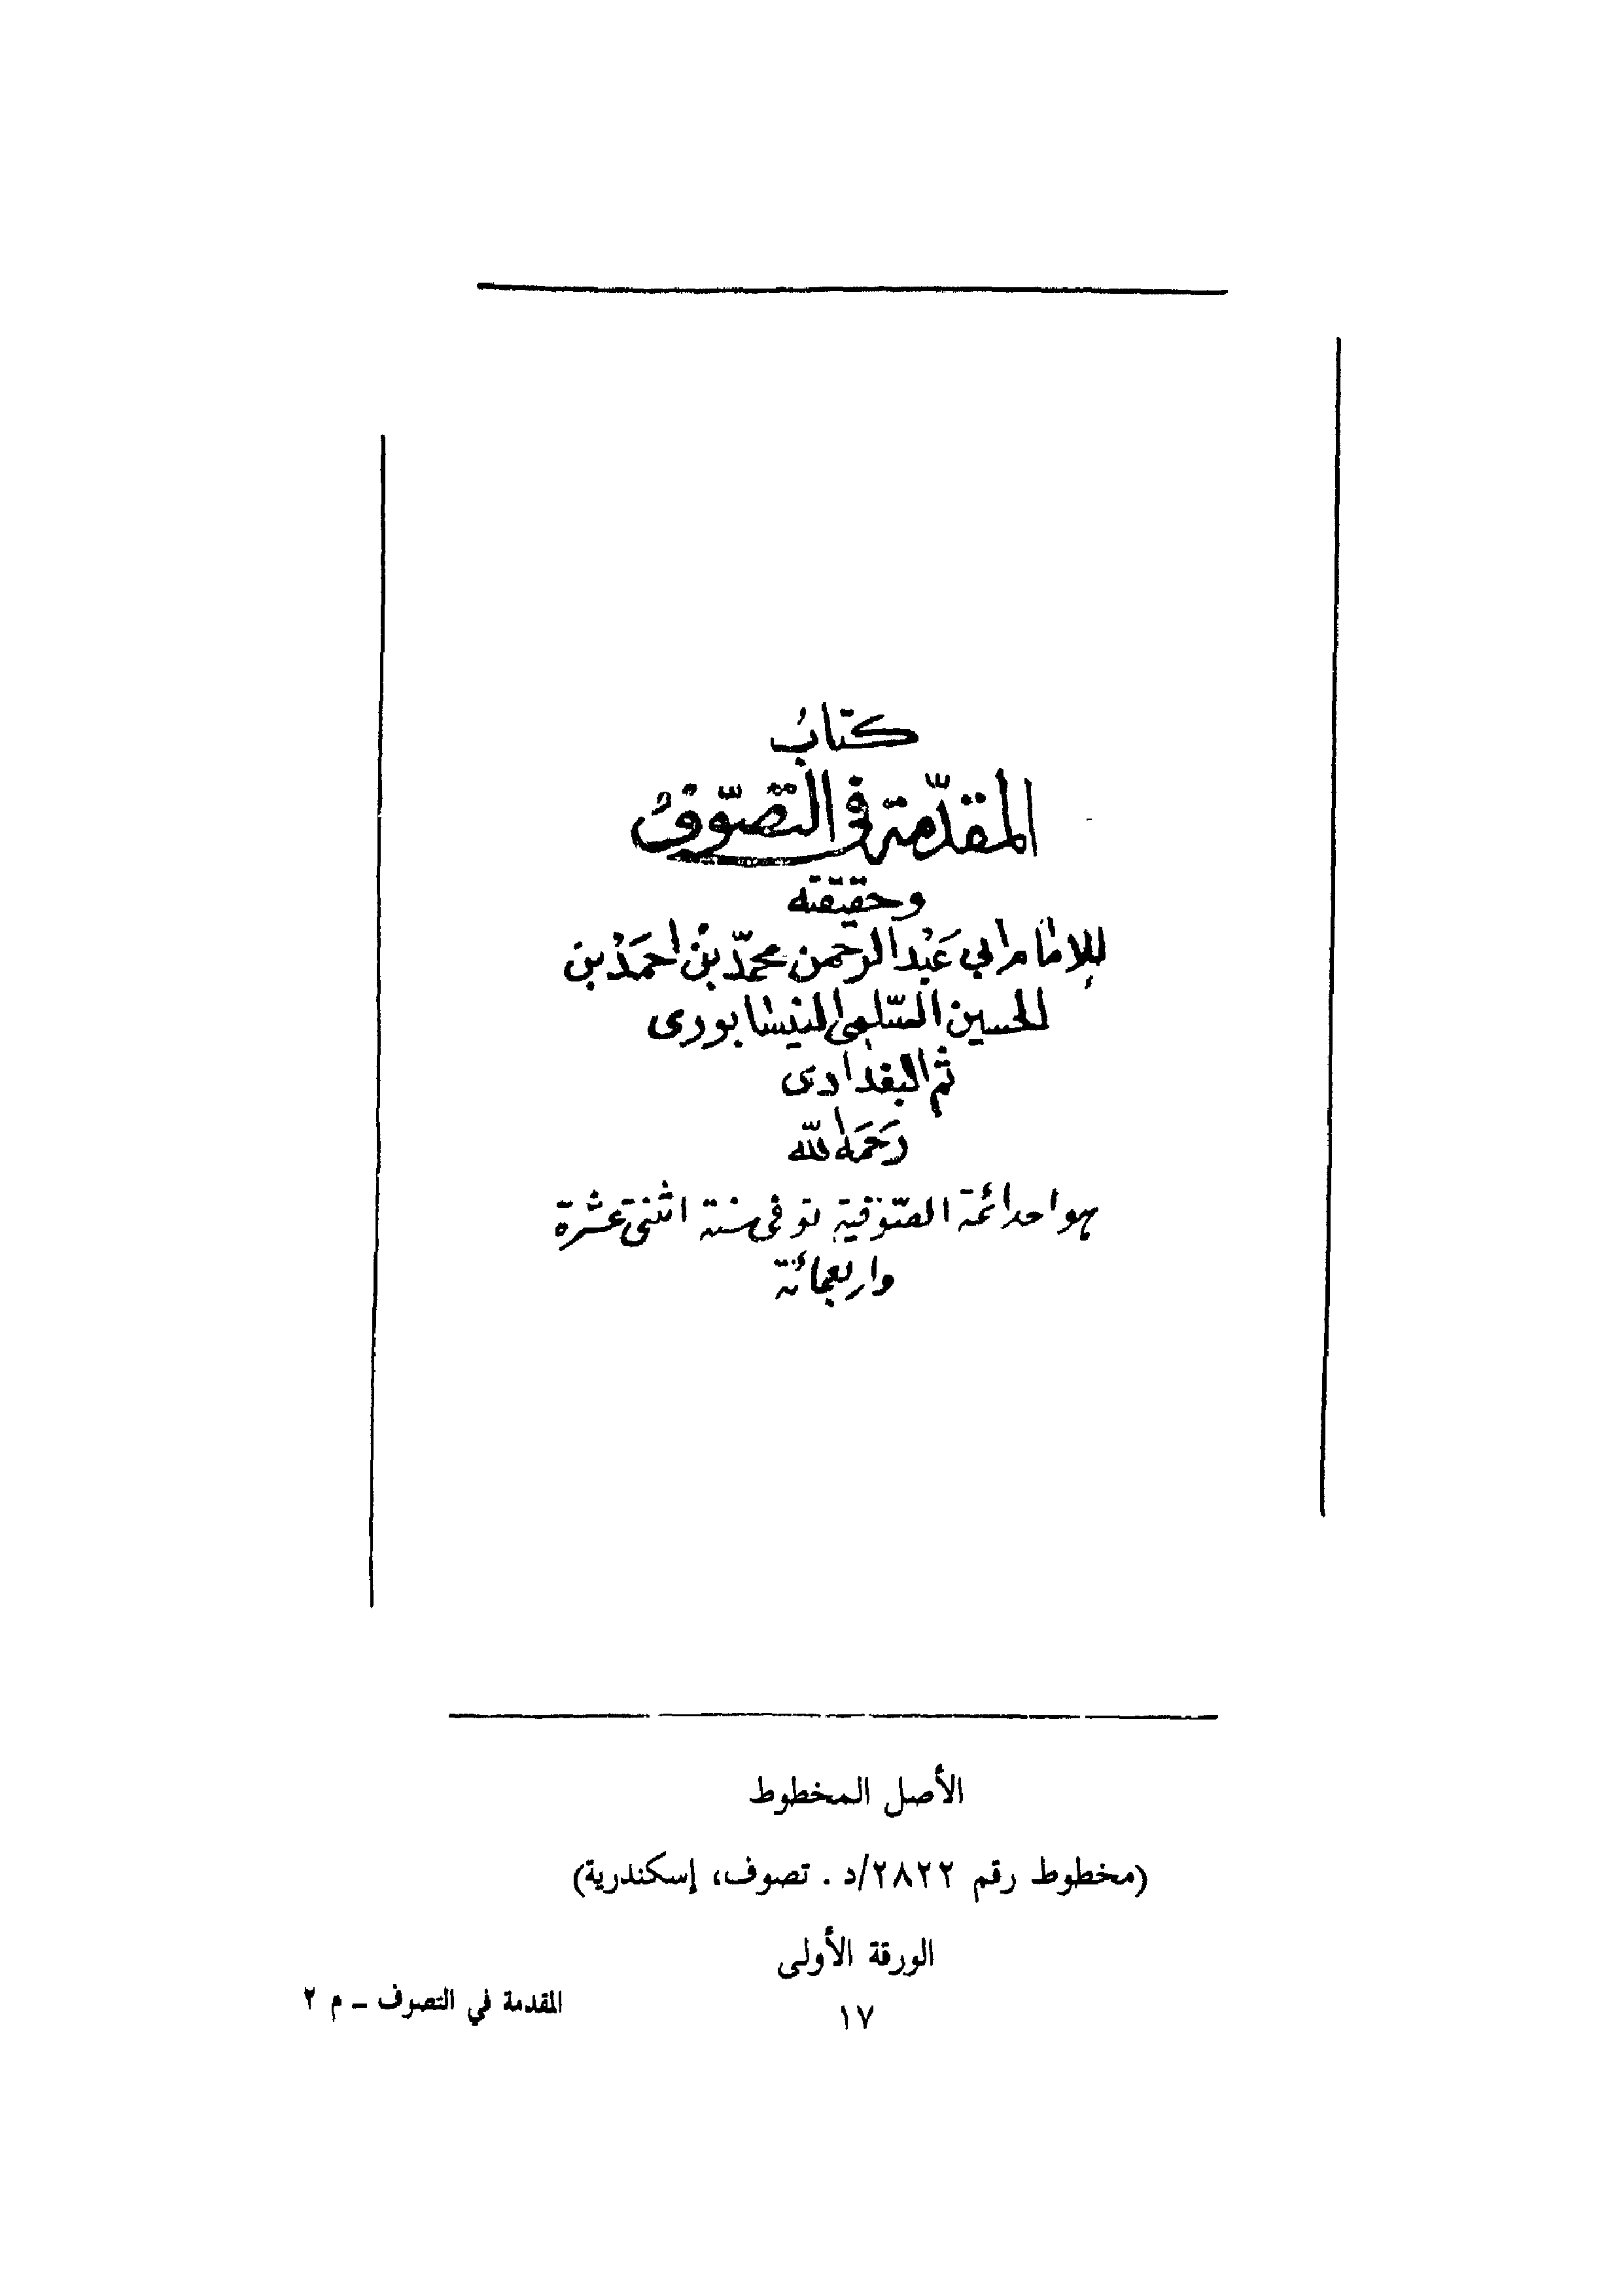 كتابُ
المقدّمة فى التصوّفُ
وحقيقته
للإمام ابي عَبْد الرحمن محمّد بْن احمَدْ بن
الحسين السّلمى النيسابورى
ثم البغدادى
رَحمَه اللّه
هو احد ائمة الصّوفية توفى سنة اثنتى عشرة
واربعمائة
الأصل المخطوط
(مخطوط رقم ٢٨٢٢/د . تصوف، إسكندرية)
الورقة الأولى
المقدمة في التصوف ـ م ٢
١٧